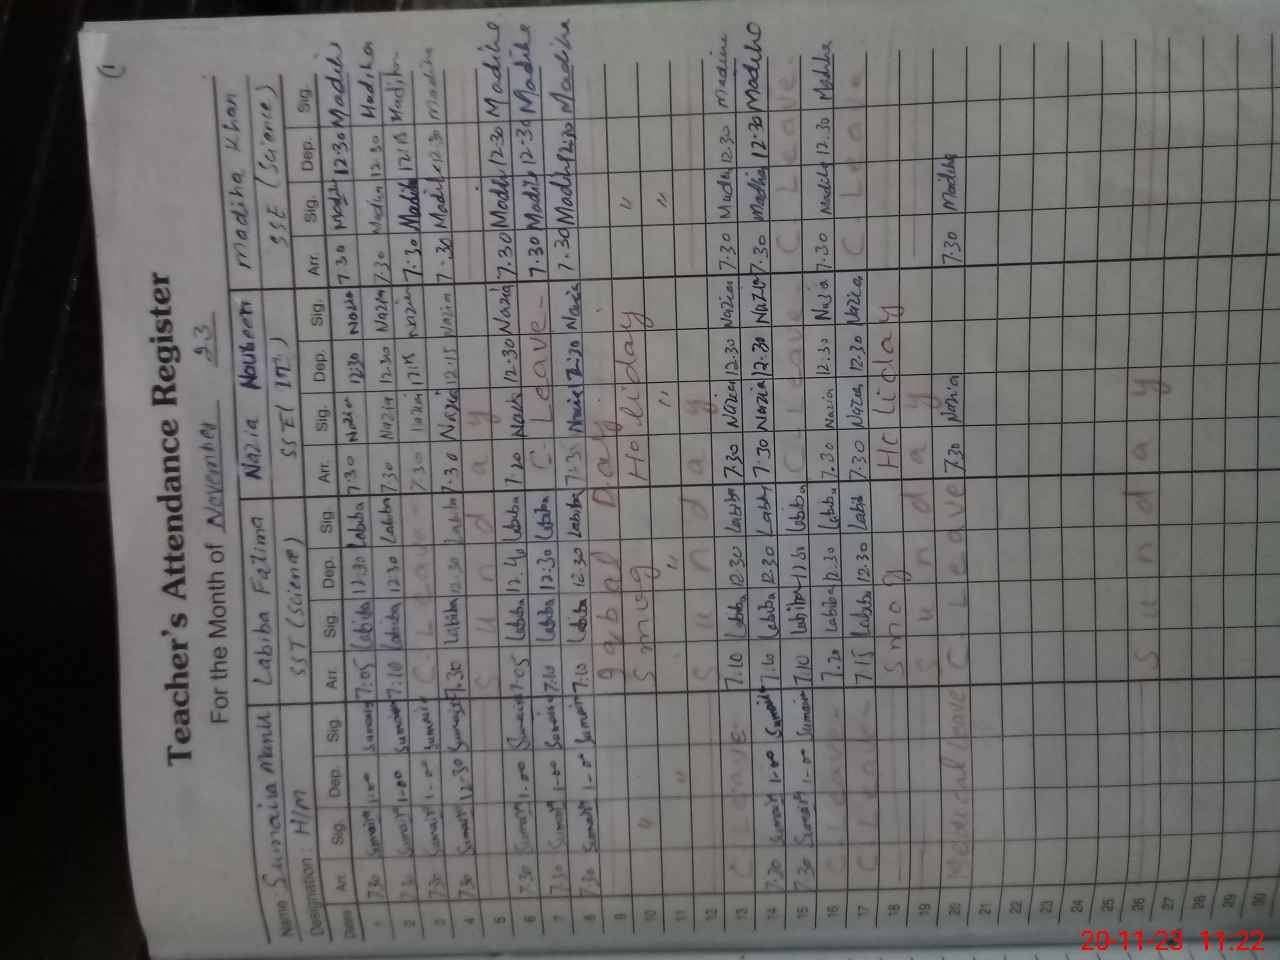 Teacher's Attendance Register
For the Month of November 23
Name Sumaira Labiba Fatima Nazia Noureen Madiha Khan
Designation: H/M SST (Science) SSE( SSE (Science)
Date Arr. Sig. Dep. Sig. Arr. Sig. Dep. Sig. Arr. Sig. Dep. Sig. Arr. Sig. Dep. Sig.
1 7.30 Sumair 1-00 Sumair 7:05 Labiba 12.30 Labiba 7.30 Nazia 12.30 Nazia 7.30 Madih 12.30 Madih
2 7.30 Sumair 1-00 Sumair 7:10 Labiba 12.30 Labiba 7.30 Nazia 12.30 Nazia 7.30 Madiha 12.30 Madiha
3 7.30 Sumair 1-00 Sumair C. Leave - 7.30 Nazia 12.15 Nazia 7.30 Madiha 12.15 Madiha
4 7.30 Sumair 12-30 Sumair 7.30 Labiba 12.30 Labiba 7.30 Nazia 12.15 Nazia 7.30 Madih 12.30 Madiha
5 Sunday
6 7.30 Sumair 1.00 Sumair 7.05 Labiba 12.40 Labiba 7.20 Nazia 12.30 Nazia 7.30 Madih 12.30 Madiha
7 7.30 Sumair 1-00 Sumair 7.10 Labiba 12.30 Labiba C. Leave - 7.30 Madih 12.30 Madiha
8 7.30 Sumair 1-00 Sumair 7.10 Labiba 12.30 Labiba 7.30 Nazia 12.30 Nazia 7.30 Madih 12.30 Madiha
9 Iqbal Day
10 " Smog Holiday "
11 " " " "
12 Sunday
13 C. Leave 7.10 Labiba 12.30 Labiba 7.30 Nazia 12.30 Nazia 7.30 Madiha 12.30 Madiha
14 7.30 Sumair 1-00 Sumair 7.10 Labiba 12.30 Labiba 7.30 Nazia 12.30 Nazia 7.30 Madiha 12.30 Madiha
15 7.30 Sumair 1-00 Sumair 7.10 Labiba 12.30 Labiba C. Leave - C. Leave.
16 C. Leave 7.20 Labiba 12.30 Labiba 7.30 Nazia 12.30 Nazia 7.30 Madiha 12.30 Madiha
17 C. Leave 7.15 Labiba 12.30 Labiba 7.30 Nazia 12.30 Nazia C. Leave
18 Smog Holiday
19 Sunday
20 Medical Leave C. Leave 7.30 Nazia 7.30 Madiha
21
22
23
24
25
26 Sunday
27
28
29
30
20-11-23 11:22